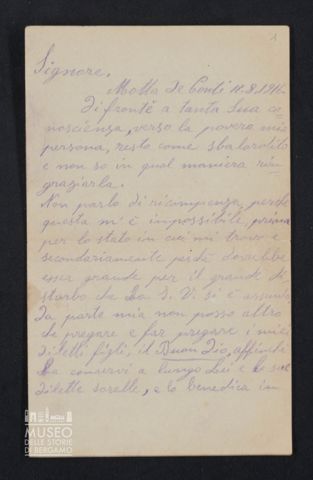 1
Signore,
Motta De Conti 11.8.1916
Di fronte a tanta Sua co-
noscienza, verso la povera mia
persona, resto come sbalordito
e non so in qual maniera rin-
graziarla.
Non parlo di ricompensa, perchè
questa mi è impossibile, prima
per lo stato in cui mi trovo e
secondariamente perchè dovrebbe
esser grande per il grande di-
sturbo che La S. V. si è assunto,
Da parte mia non posso altro
che pregare e far pregare i miei
diletti figli, il Buon Dio, affinchè
La conservi a lungo Lei e le sue
dilette sorelle, e lo benedica in
MUSEO
DELLE STORIE
DI BERGAMO